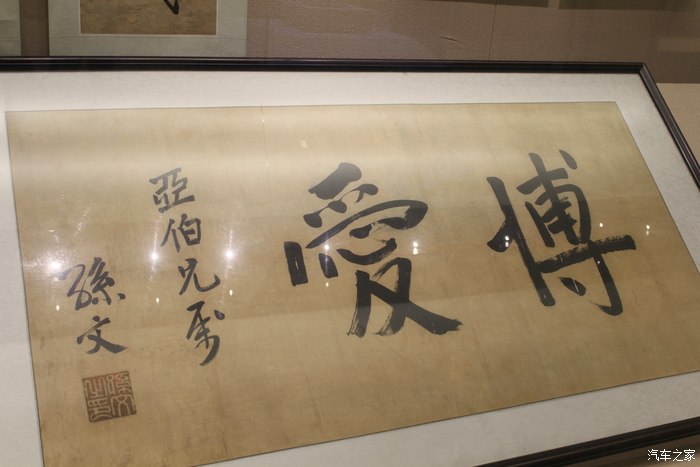 博愛
亞伯兄属
孫文
孫文之印
汽车之家